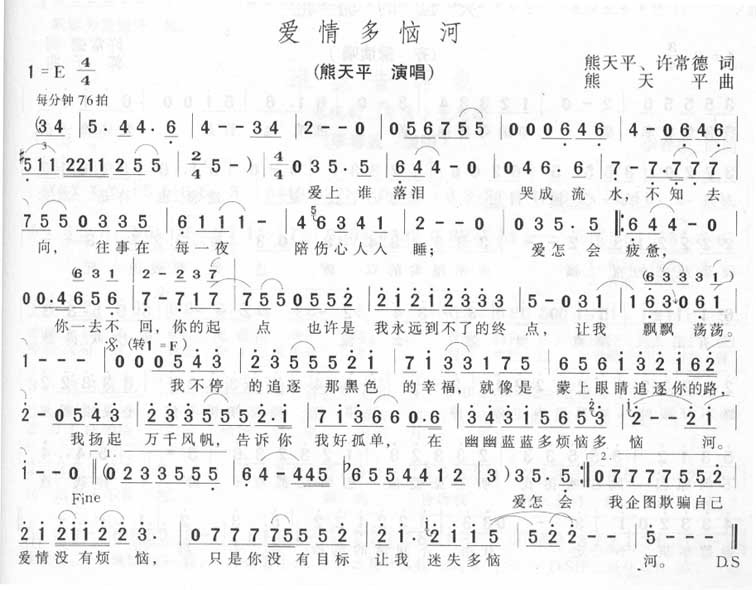 爱情多恼河
1=E 4/4
(熊天平 演唱)
熊天平、许常德 词
熊天平 曲
每分钟76拍
(34 5·44·6 4--34 2--0 056755 000646 4-0646
#511 2211 255 2/4 5-) 4/4 035·5 644-0 046·6 7-7777
爱上谁 落泪 哭成流 水,不知去
755 0335 6111- 463341 2--0 035·5 644-0
向, 往事在 每一夜 陪伤心人入 睡; 爱怎会 疲惫,
631 2-237 (63331)
00·4656 7-717 7550552 21212333 5-031 163061
你一去不 回,你的起 点 也许是 我永远到不了的终 点,让我 飘飘 荡荡。
1--- (转1=F) 000543 2355521 7133175 656132162
我不停 的追逐 那黑色 的幸福,就像是 蒙上眼睛追逐你的路,
2-0543 2335552·1 713660·6 34315653 2--21
我扬起 万千风帆,告诉你 我好孤单, 在 幽幽蓝蓝多烦恼多 恼 河。
1--0 (0233555 64-445 65544122 3)35·5 07777552
1.
2.
Fine
爱怎会 我企图欺骗自己
2122123- 07777552 2·2115 52-- 5---
爱情没有烦 恼, 只是你没 有目标 让我 迷失多恼 河。
D.S